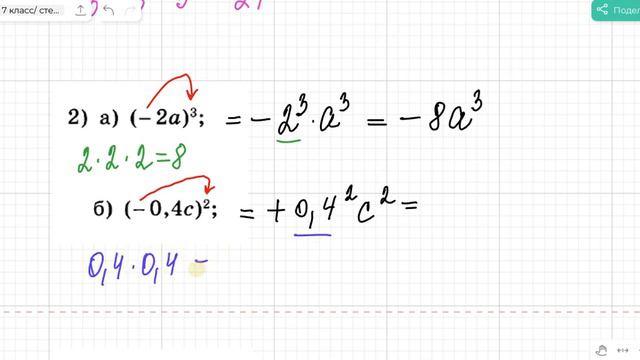 7 класс/ сте...
Подел
2) а) (−2a)³; = −2³·a³ = −8a³
2·2·2=8
б) (−0,4c)²; = +0,4²c² =
0,4·0,4 =